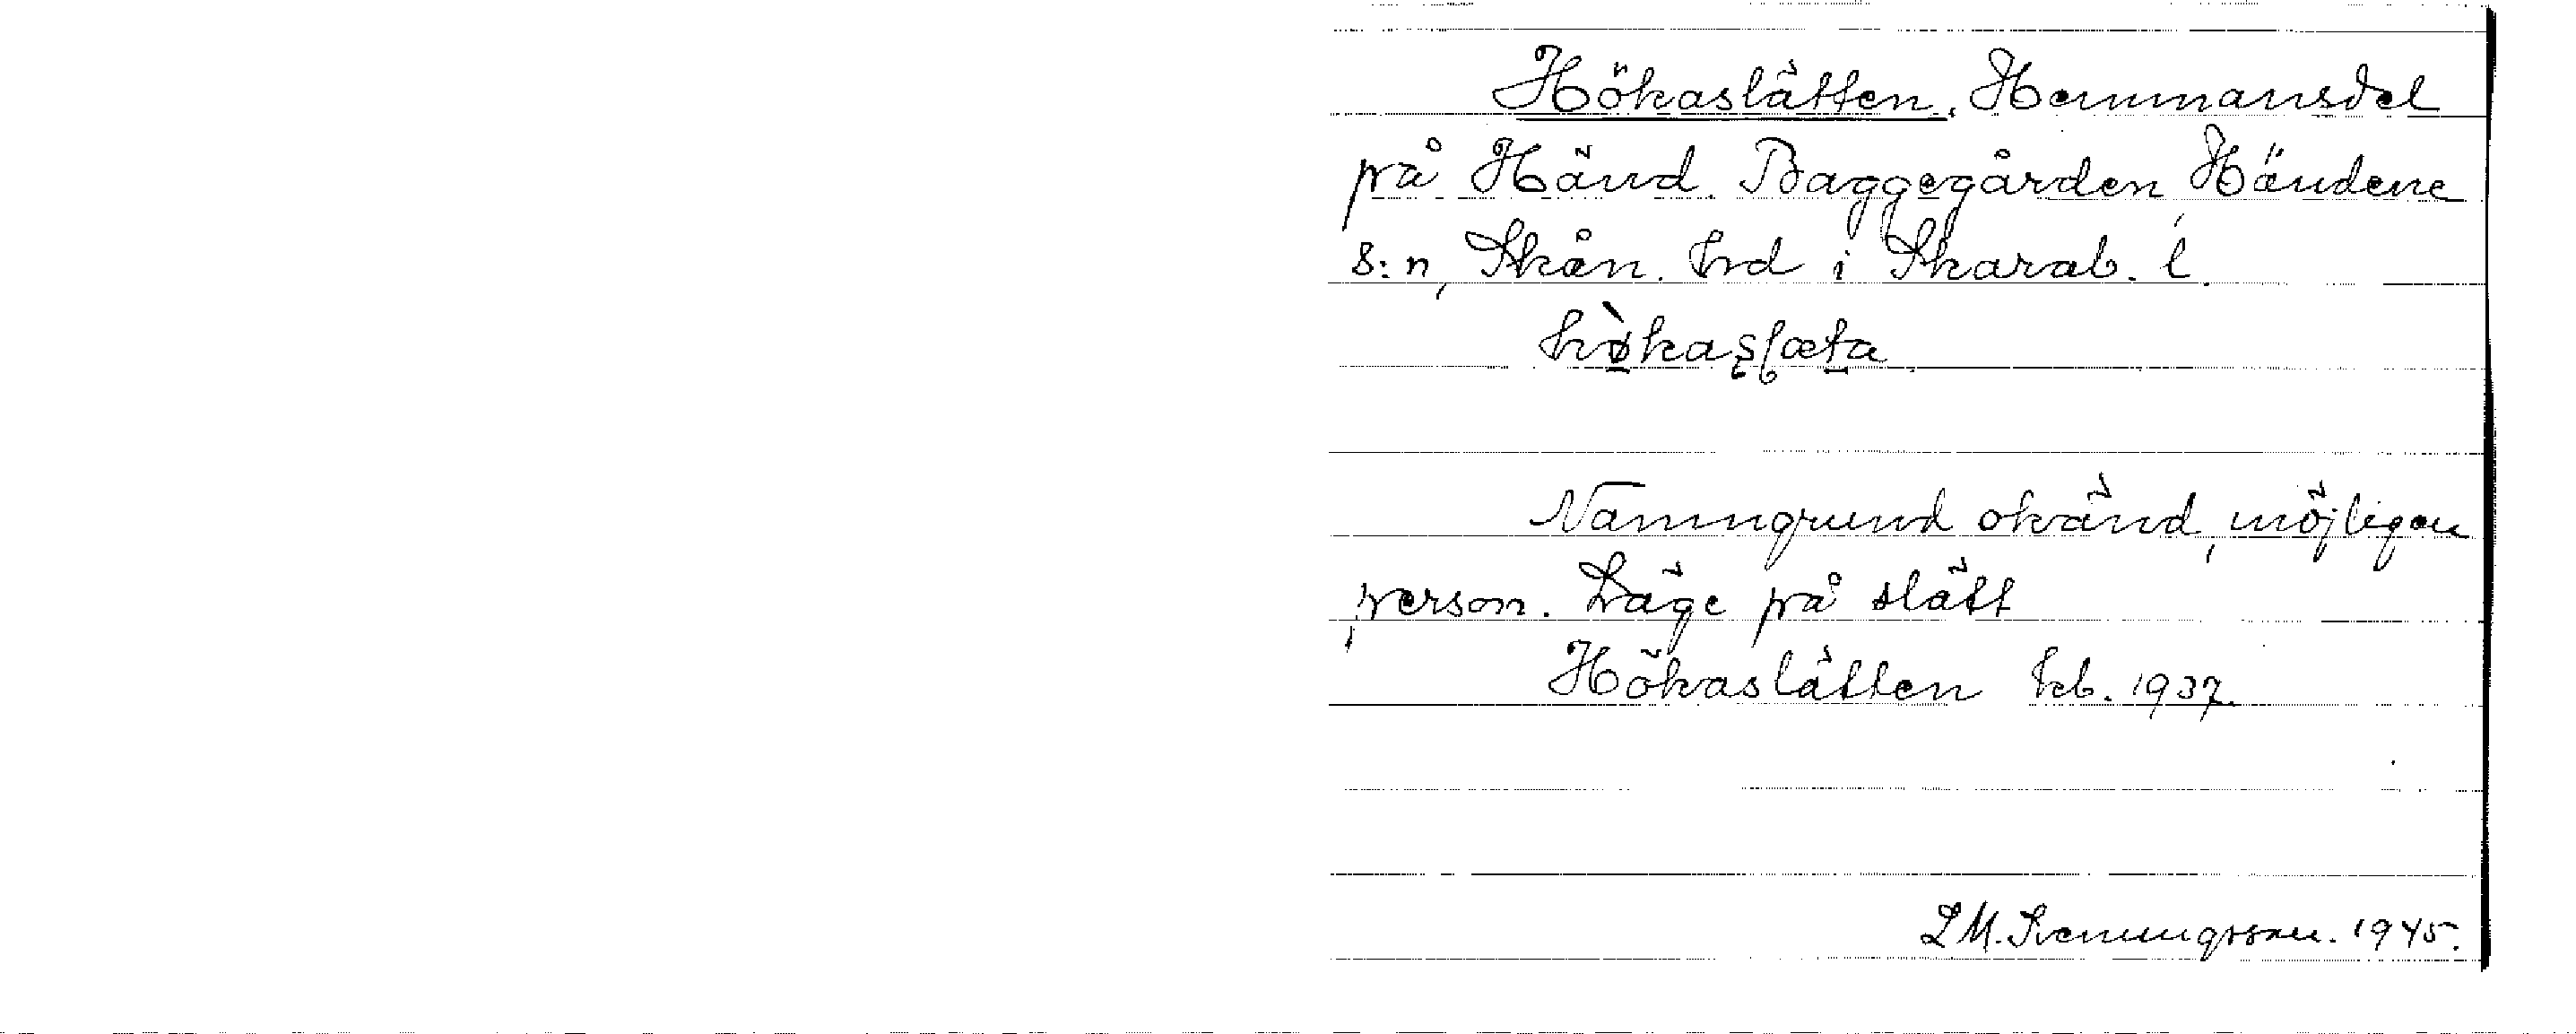 Hökaslätten. Hemmansdel
på Händ. Baggegården, Händene
s:n, Skån. hrd i Skarab. l.
hø̀kaslæta
Namngrund okänd, möjligen
person. Läge på slätt
Hökaslätten kb. 1937.
L M. Svenungsson. 1945.